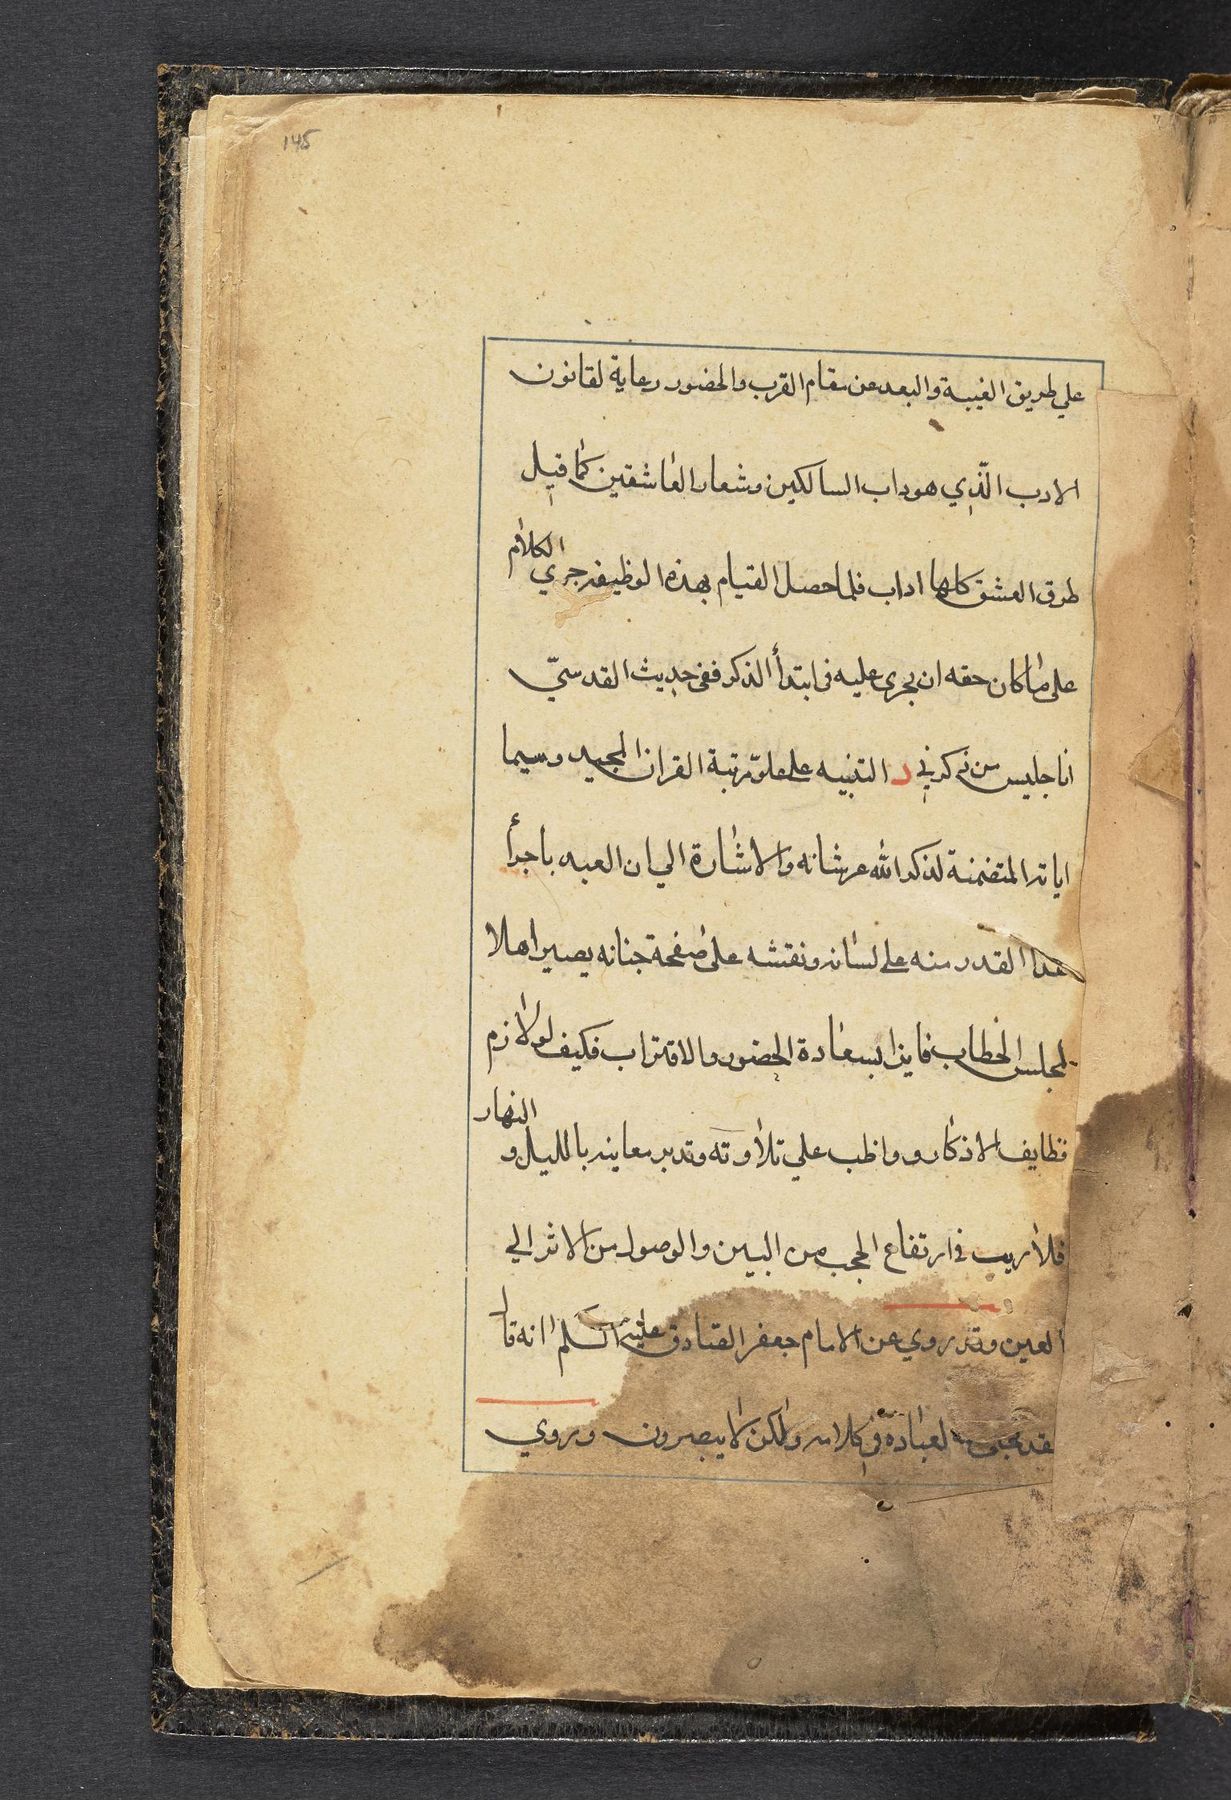 ١٤٥
علي طريق الغيبة والبعد عن مقام القرب والحضور رعاية لقانون
الادب الّذي هو داب السالكين وشعار العاشقين كما قيل
طرق العشق كلها اداب فلما حصل القيام بهذه الوظيفه جري الكلام
على ما كان حقه ان يجرى عليه فى ابتدأ الذكر ففى حديث القدسيّ
انا جليس من ذكرني د التنبيه على علوّ مرتبة القران المجيد وسيما
اياته المتضمنة لذكر الله عز شانه والاشارة الي ان العبد باجرأ
هذا القدر منه على لسانه ونقشه على صفحة جنانه يصير اهلا
لمجلس الخطاب فايزا بسعادة الحضور والاقتراب فكيف لو لازم
وظايف الاذكار وواظب علي تلاوته وتدبر معانيه بالليل و النهار
فلا ريب فى ارتفاع الحجب من البين والوصول من الاثر الي
العين وقد روي عن الامام جعفر الصادق عليه السلم انه قال
لقد تجلى لعباده في كلامه ولكن لا يبصرون وروي